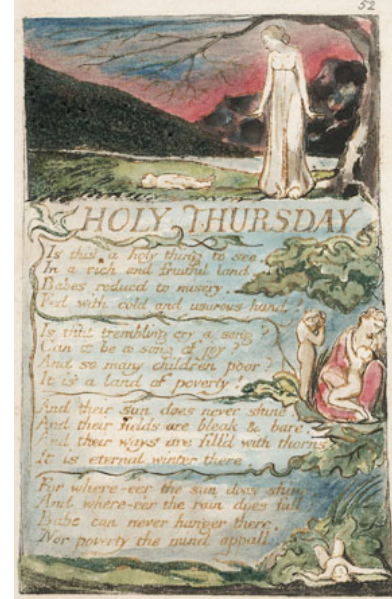 52
HOLY THURSDAY
Is this a holy thing to see.
In a rich and fruitful land.
Babes reduced to misery.
Fed with cold and usurous hand?
Is that trembling cry a song?
Can it be a song of joy?
And so many children poor?
It is a land of poverty!
And their sun does never shine.
And their fields are bleak & bare.
And their ways are fill'd with thorns
It is eternal winter there
For where-e'er the sun does shine.
And where-e'er the rain does fall
Babe can never hunger there,
Nor poverty the mind appall.